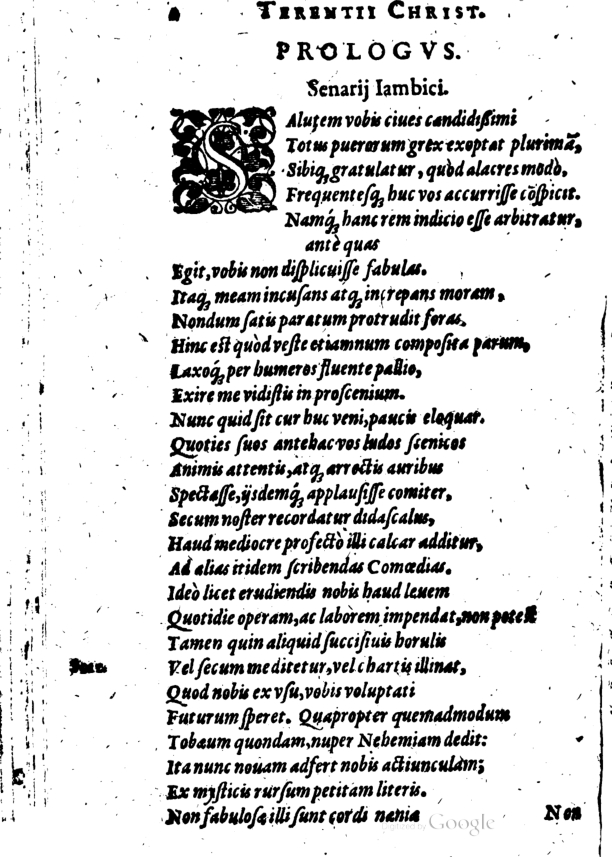 TERENTII CHRIST.
PROLOGVS.
Senarij Iambici.
SAlutem vobis ciues candidißimi
Totus puerorum grex exoptat plurimā,
Sibiq́; gratulatur, quòd alacres modò,
Frequentesq́; huc vos accurriſſe cōſpicit.
Namq́; hanc rem indicio eſſe arbitratur,
antè quas
Egit, vobis non diſplicuiſſe fabulas.
Itaq́; meam incuſans atq́; increpans moram,
Nondum ſatis paratum protrudit foras.
Hinc eſt quòd veſte etiamnum compoſita parum,
Laxoq́; per humeros fluente pallio,
Exire me vidiſtis in proſcenium.
Nunc quid ſit cur huc veni, paucis eloquar.
Quoties ſuos antehac vos ludos ſcenicos
Animis attentis, atq́; arrectis auribus
Spectaſſe, ijsdemq́; applauſiſſe comiter,
Secum noſter recordatur didaſcalus,
Haud mediocre profectò illi calcar additur,
Ad alias itidem ſcribendas Comœdias.
Ideò licet erudiendis nobis haud leuem
Quotidie operam, ac laborem impendat, non poteſt
Tamen quin aliquid ſucciſiuis horulis
Vel ſecum meditetur, vel chartis illinat,
Quod nobis ex vſu, vobis voluptati
Futurum ſperet. Quapropter quemadmodum
Tobæum quondam, nuper Nehemiam dedit:
Ita nunc nouam adfert nobis actiunculam;
Ex myſticis rurſum petitam literis.
Non fabuloſæ illi ſunt cordi nænia
Non
Google